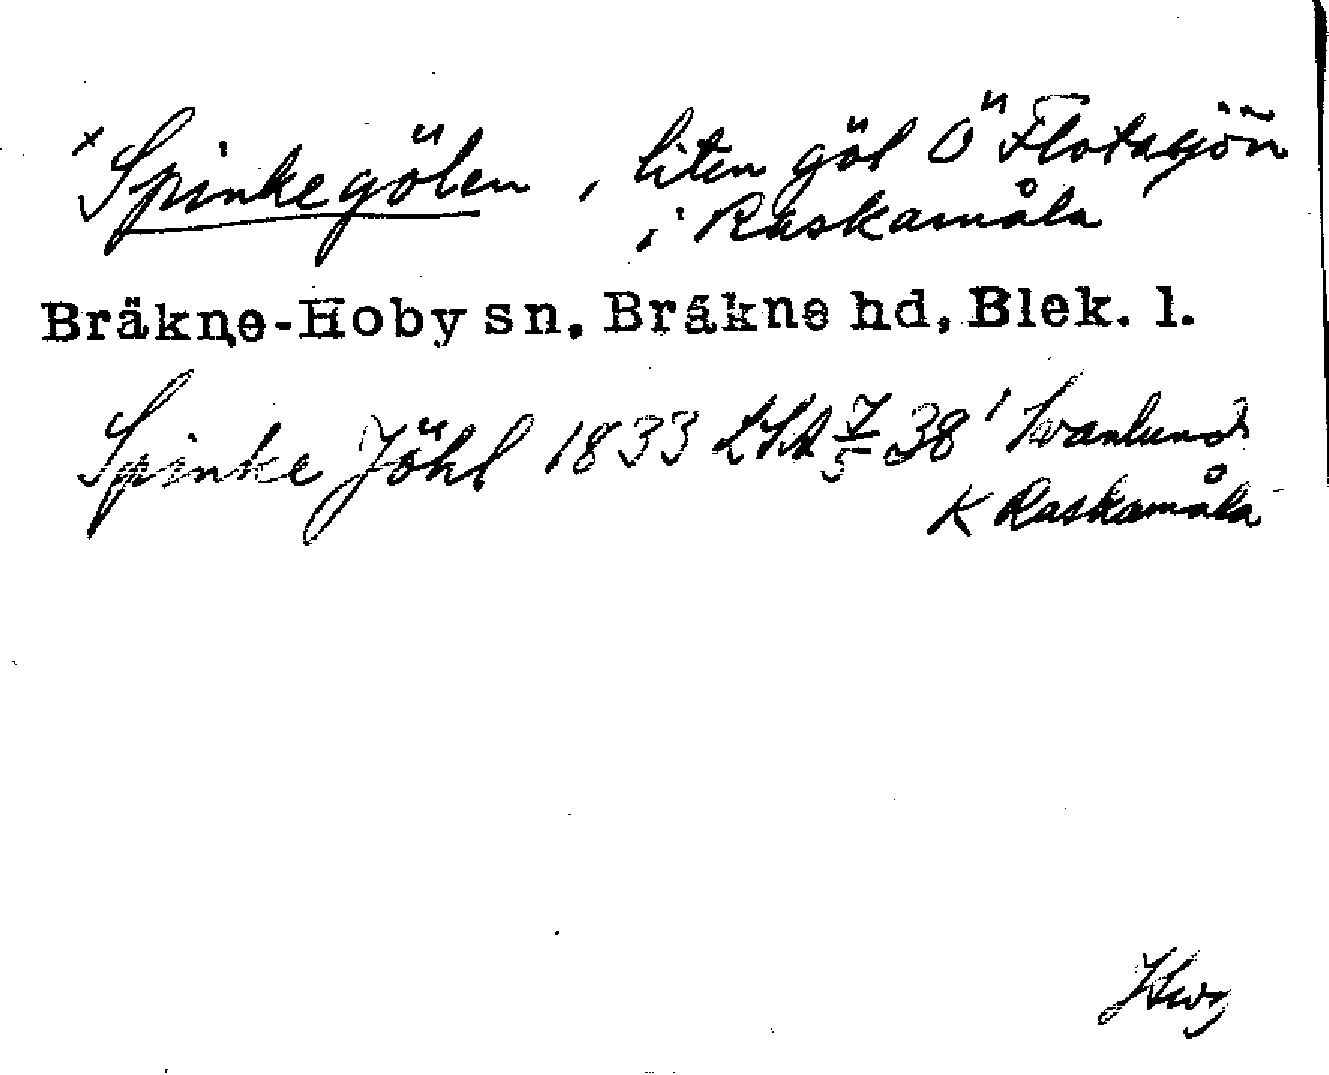 × Spinkegölen, liten göl Ö Flotasjön
i Raskamåla
Bräkne-Hoby sn. Bräkne hd, Blek. l.
Spinke Jöhl 1833 LSA 7/5 38 Svanlund
K Raskamåla